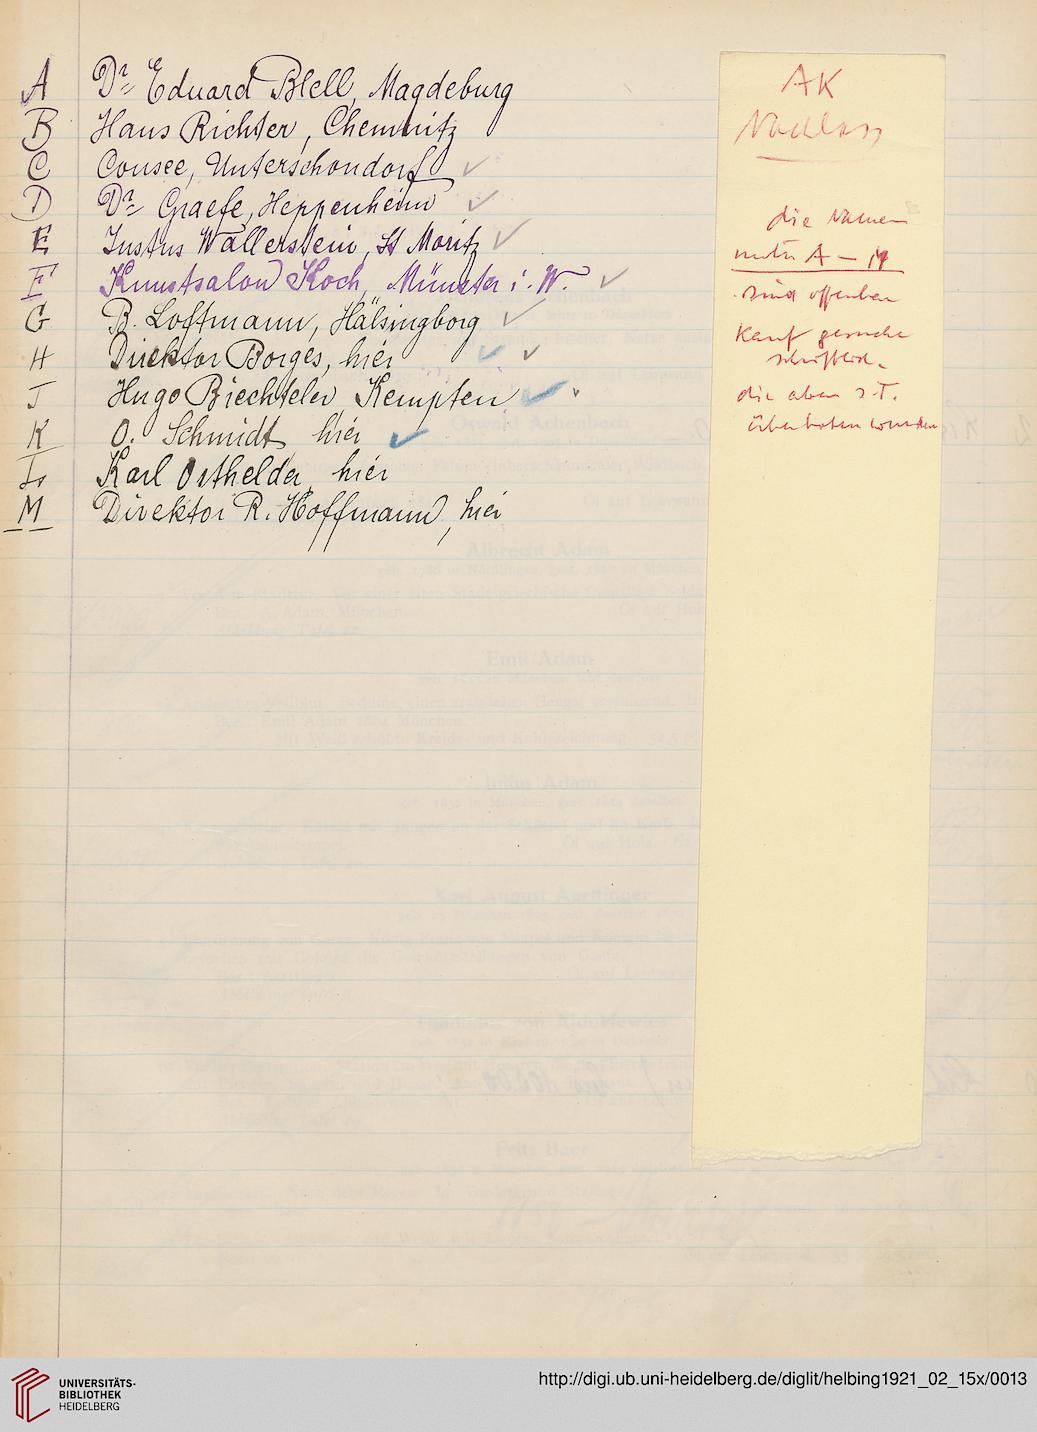 A Dr. Eduard Blell, Magdeburg
B Hans Richter, Chemnitz
C Consee, Unterschondorf
D Dr. Graefe, Heppenheim
E Justus Wallerstein, St Moritz
F Kunstsalon Koch, Münster i. W.
G B. Loffmann, Hälsingborg
H Direktor Borges, hier
J Hugo Biechteler, Kempten
K O. Schmidt, hier
L Karl Osthelder, hier
M Direktor R. Hoffmann, hier
AK
Nachlass
die Namen
unter A – M
sind offenbar
Kauf gesuche
schriftlich.
die aber z.T.
überboten wurden
Oswald Achenbach
Albrecht Adam
Emil Adam
Julius Adam
Fritz Baer
UNIVERSITÄTS-
BIBLIOTHEK
HEIDELBERG
http://digi.ub.uni-heidelberg.de/diglit/helbing1921_02_15x/0013